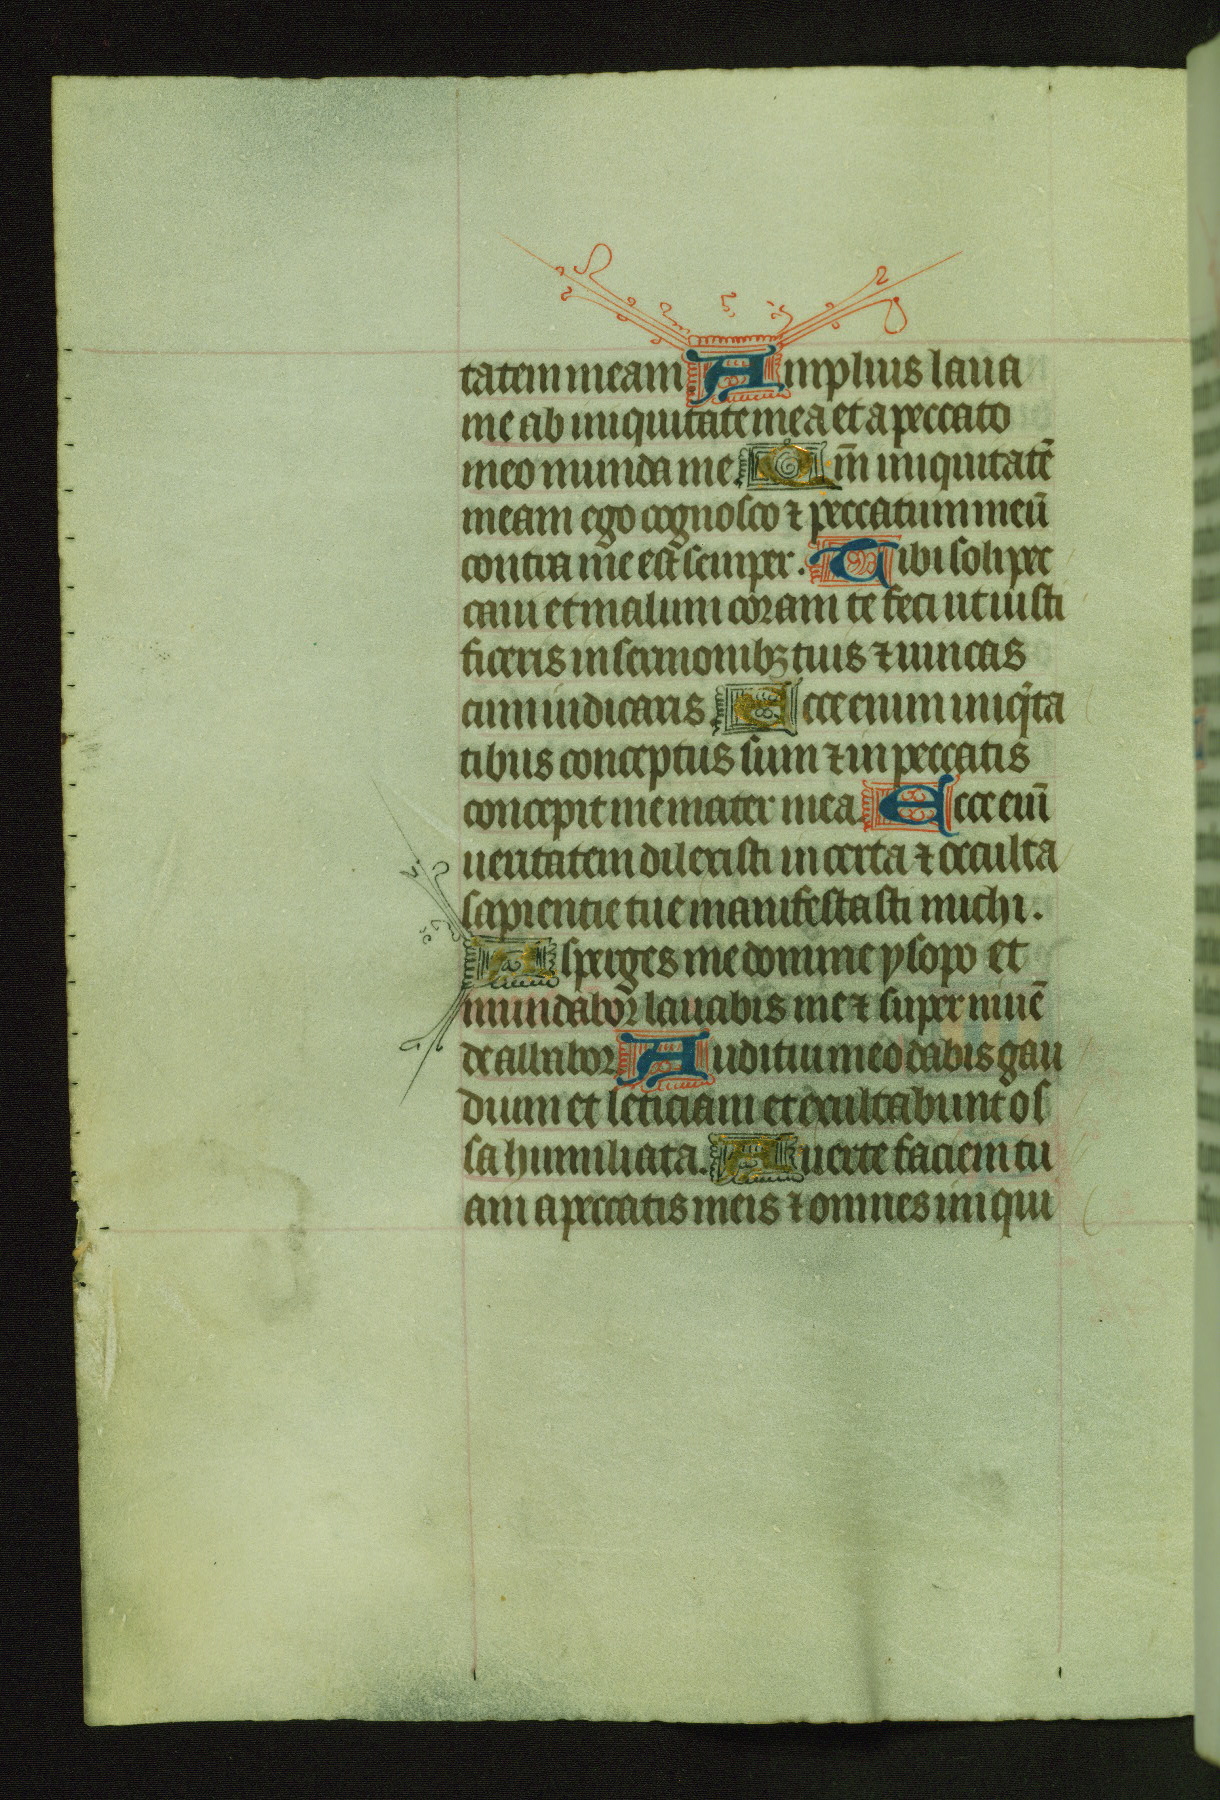 tatem meam Amplius laua
me ab iniquitate mea et a peccato
meo munda me Qm̅ iniquitatē
meam ego cognosco ⁊ peccatum meū
contra me est semper. Tibi soli pec
caui et malum coram te feci ut iusti
ficeris in sermonibꝫ tuis ⁊ uincas
cum iudicaris Ecce enim iniqͥta
tibus conceptus sum ⁊ in peccatis
concepit me mater mea Ecce eni̅
ueritatem dilexisti incerta ⁊ occulta
sapientie tue manifestasti michi.
Asperges me domine ysopo et
mundabor lauabis me ⁊ super niuē
dealbabor Auditui meo dabis gau
dium et leticiam et exultabunt os
sa humiliata. Auerte faciem tu
am a peccatis meis ⁊ omnes iniqui